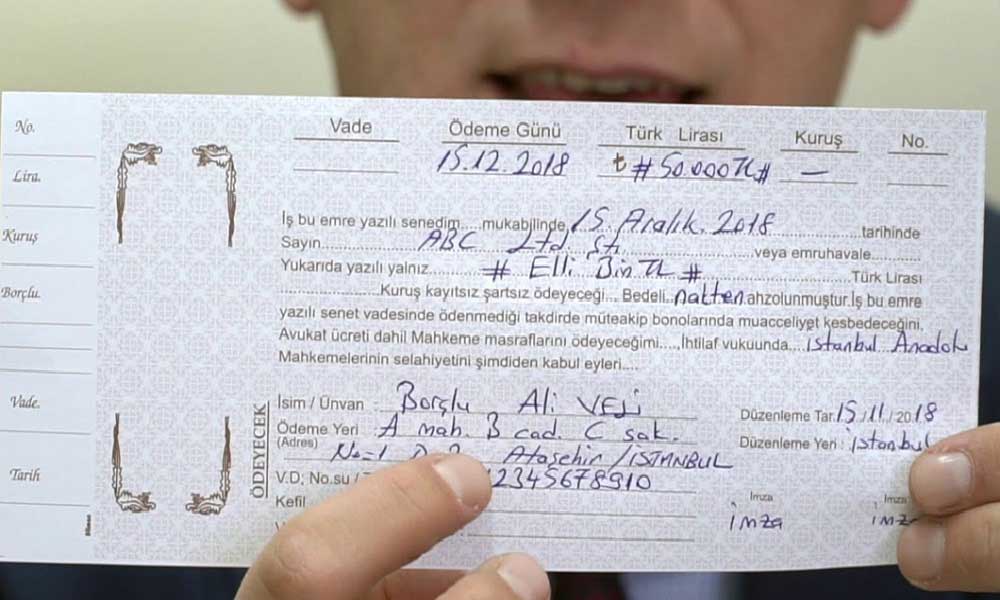 No.
Lira.
Kuruş
Borçlu.
Vade.
Tarih
Vade Ödeme Günü Türk Lirası Kuruş No.
15.12.2018 ₺ #50.000TL# —
İş bu emre yazılı senedim....mukabilinde 15 Aralık 2018 tarihinde
Sayın ABC Ltd Şti. veya emruhavale
Yukarıda yazılı yalnız # Elli Bin TL # Türk Lirası
Kuruş kayıtsız şartsız ödeyeceği.... Bedeli nakten ahzolunmuştur.İş bu emre
yazılı senet vadesinde ödenmediği takdirde müteakip bonolarında muacceliyet kesbedeceğini,
Avukat ücreti dahil Mahkeme masraflarını ödeyeceğimi....,İhtilaf vukuunda.... istanbul Anadolu
Mahkemelerinin selahiyetini şimdiden kabul eyleri....
ÖDEYECEK
İsim / Ünvan Borçlu Ali VELİ
Ödeme Yeri A mah. B cad. C sok.
(Adres) No=1 Ataşehir/İSTANBUL
V.D. No.su / 12345678910
Kefil
Düzenleme Tar. 15/11/2018
Düzenleme Yeri : istanbul
İmza İmza
imza imz